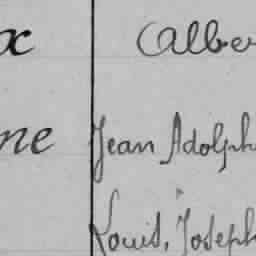 x Alber
ne Jean Adolph
Louis, Joseph